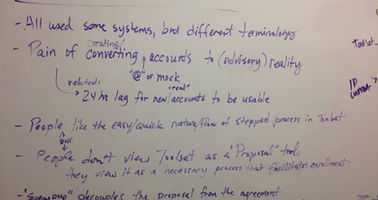 - All used some systems, but different terminology
creating/
- Pain of converting accounts to (advisory) reality
"@" or mock
related: "real"
> 24 hr lag for new/accounts to be usable
- People like the easy/quick nature/flow of stepped process in Toolset
BUT
- People don't view Toolset as a "Proposal" tool;
they view it as a necessary process that facilitates enrollment
decouples the proposal from the agreement
Toolset
ID